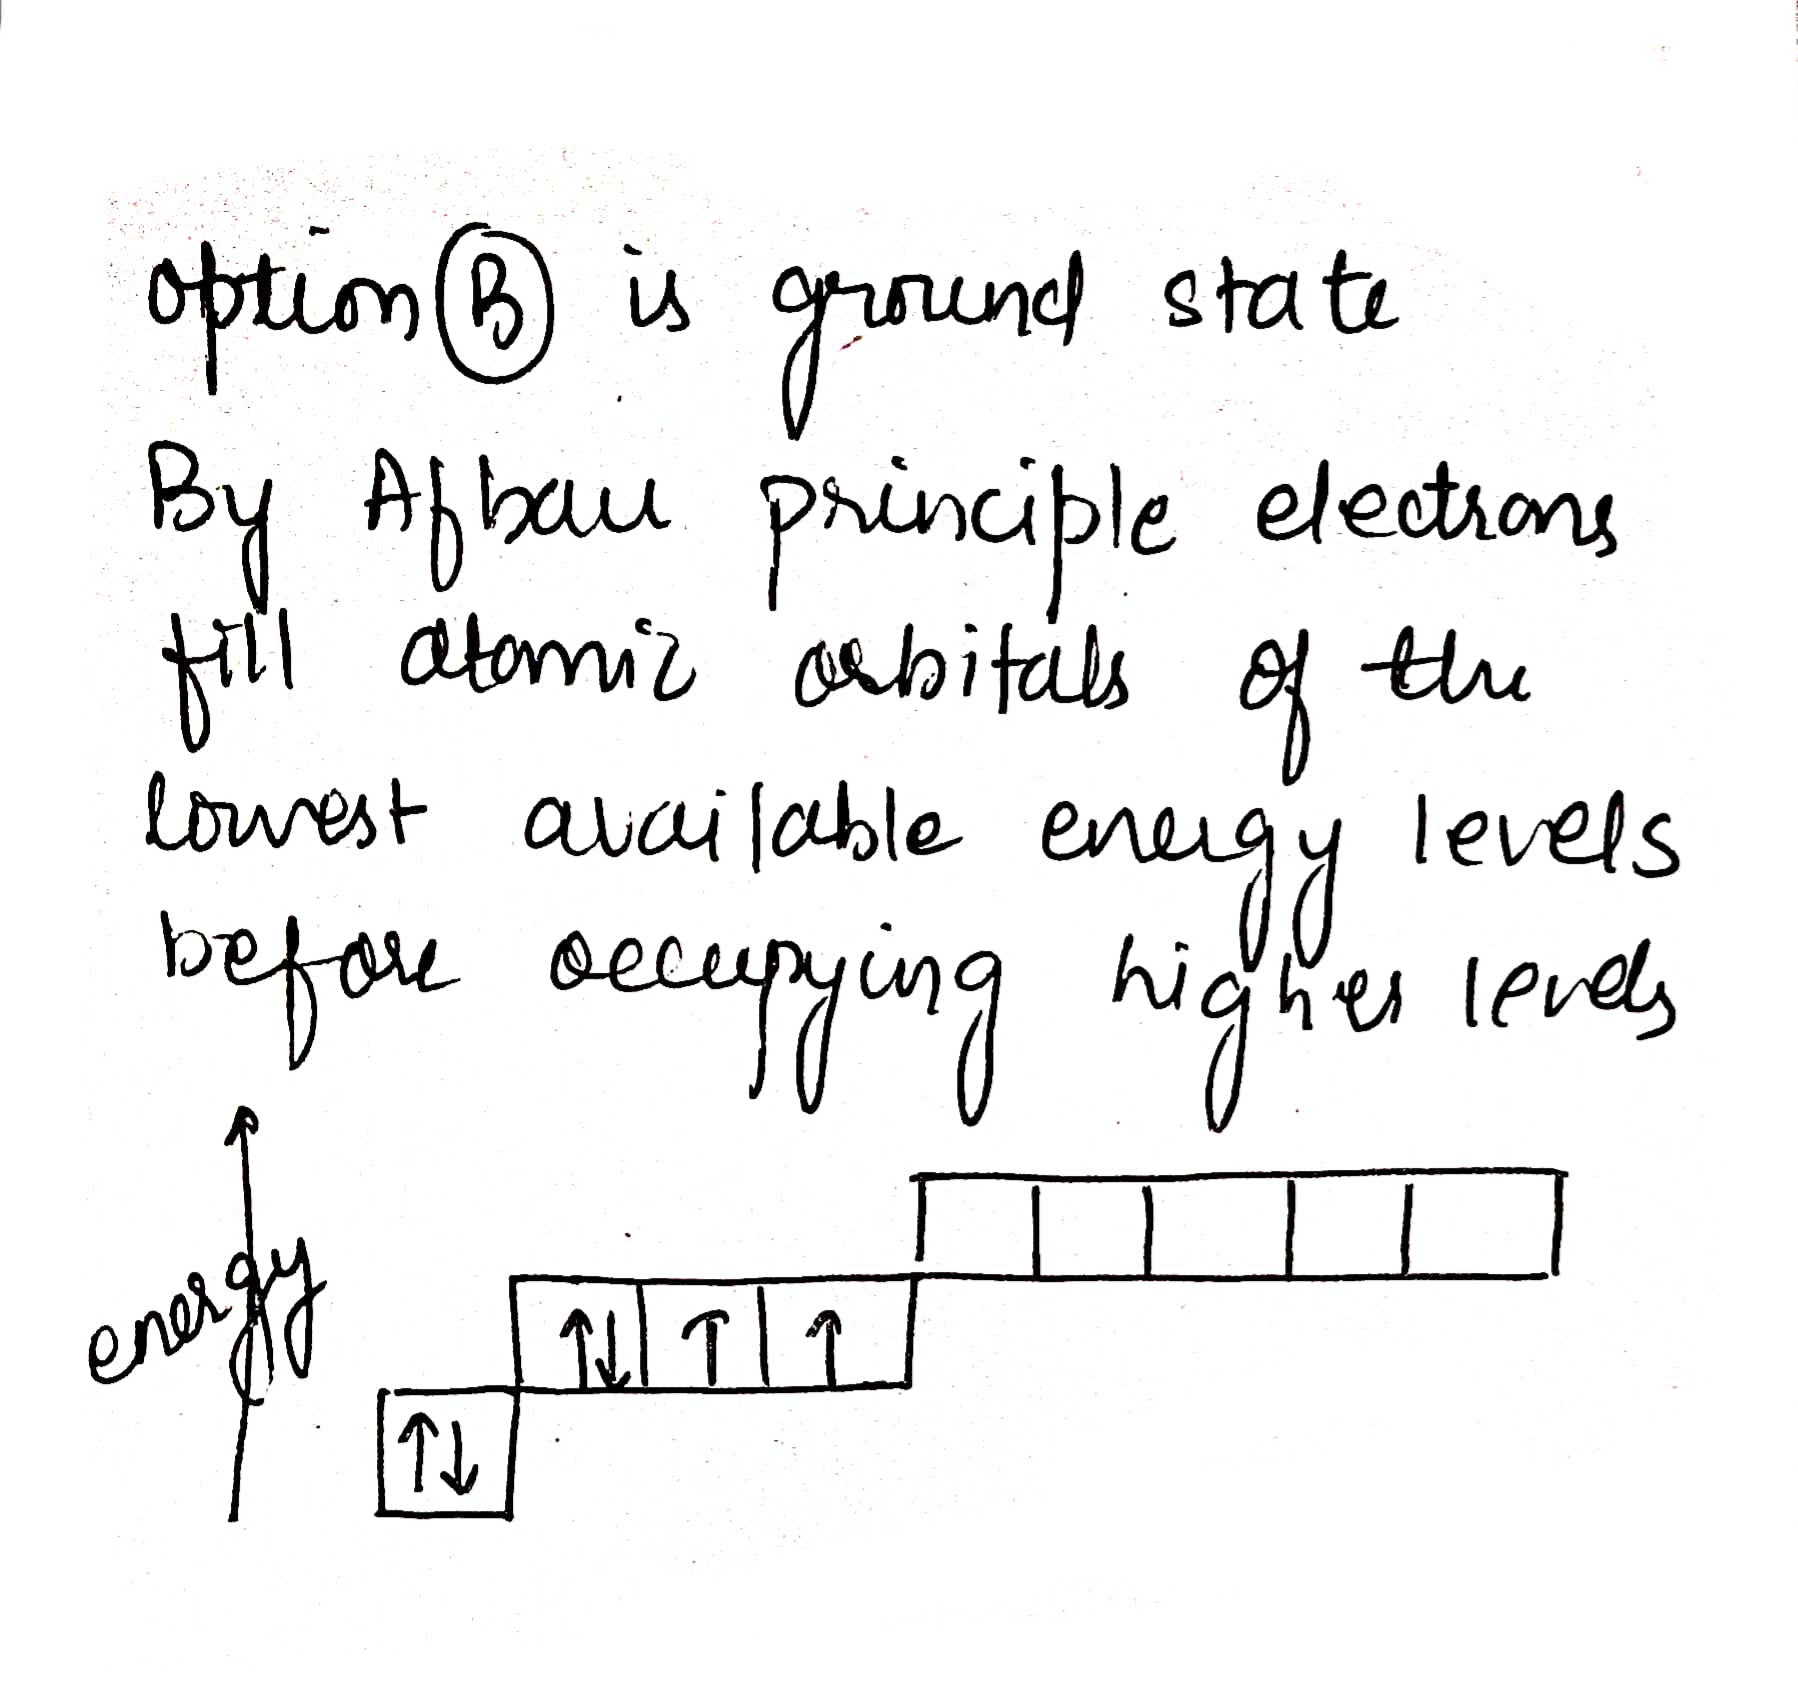 option B is ground state
By Afbau principle electrons
fill atomic orbitals of the
lowest available energy levels
before occupying higher levels
energy